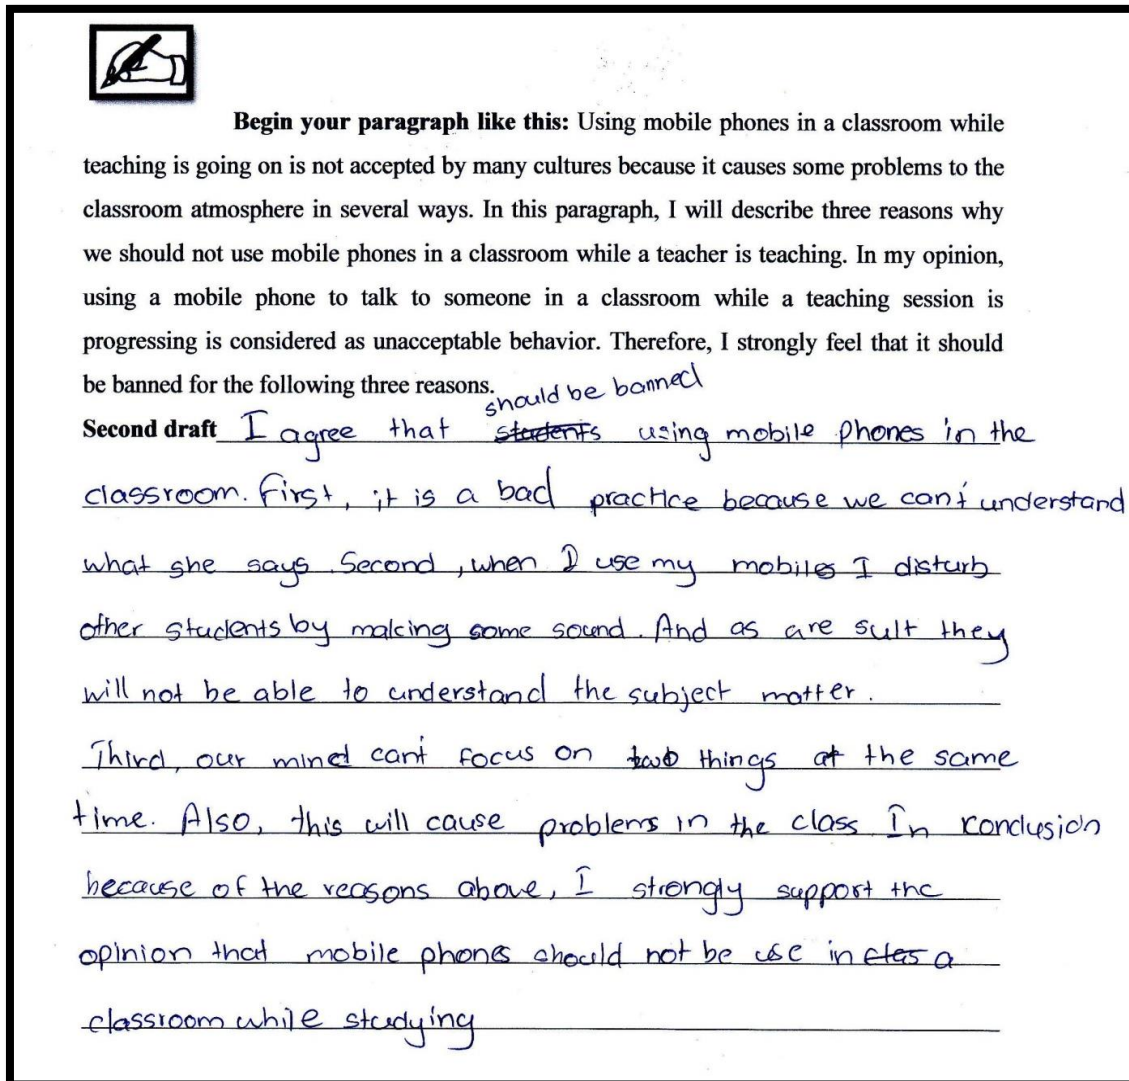 Begin your paragraph like this: Using mobile phones in a classroom while
teaching is going on is not accepted by many cultures because it causes some problems to the
classroom atmosphere in several ways. In this paragraph, I will describe three reasons why
we should not use mobile phones in a classroom while a teacher is teaching. In my opinion,
using a mobile phone to talk to someone in a classroom while a teaching session is
progressing is considered as unacceptable behavior. Therefore, I strongly feel that it should
be banned for the following three reasons.
should be banned
Second draft I agree that students using mobile phones in the
classroom. First, it is a bad practice because we can't understand
what she says. Second, when I use my mobiles I disturb
other students by making some sound. And as are sult they
will not be able to understand the subject matter.
Third, our mind can't focus on two things at the same
time. Also, this will cause problems in the class In conclusion
because of the reasons above, I strongly support the
opinion that mobile phones should not be use in clas a
classroom while studying